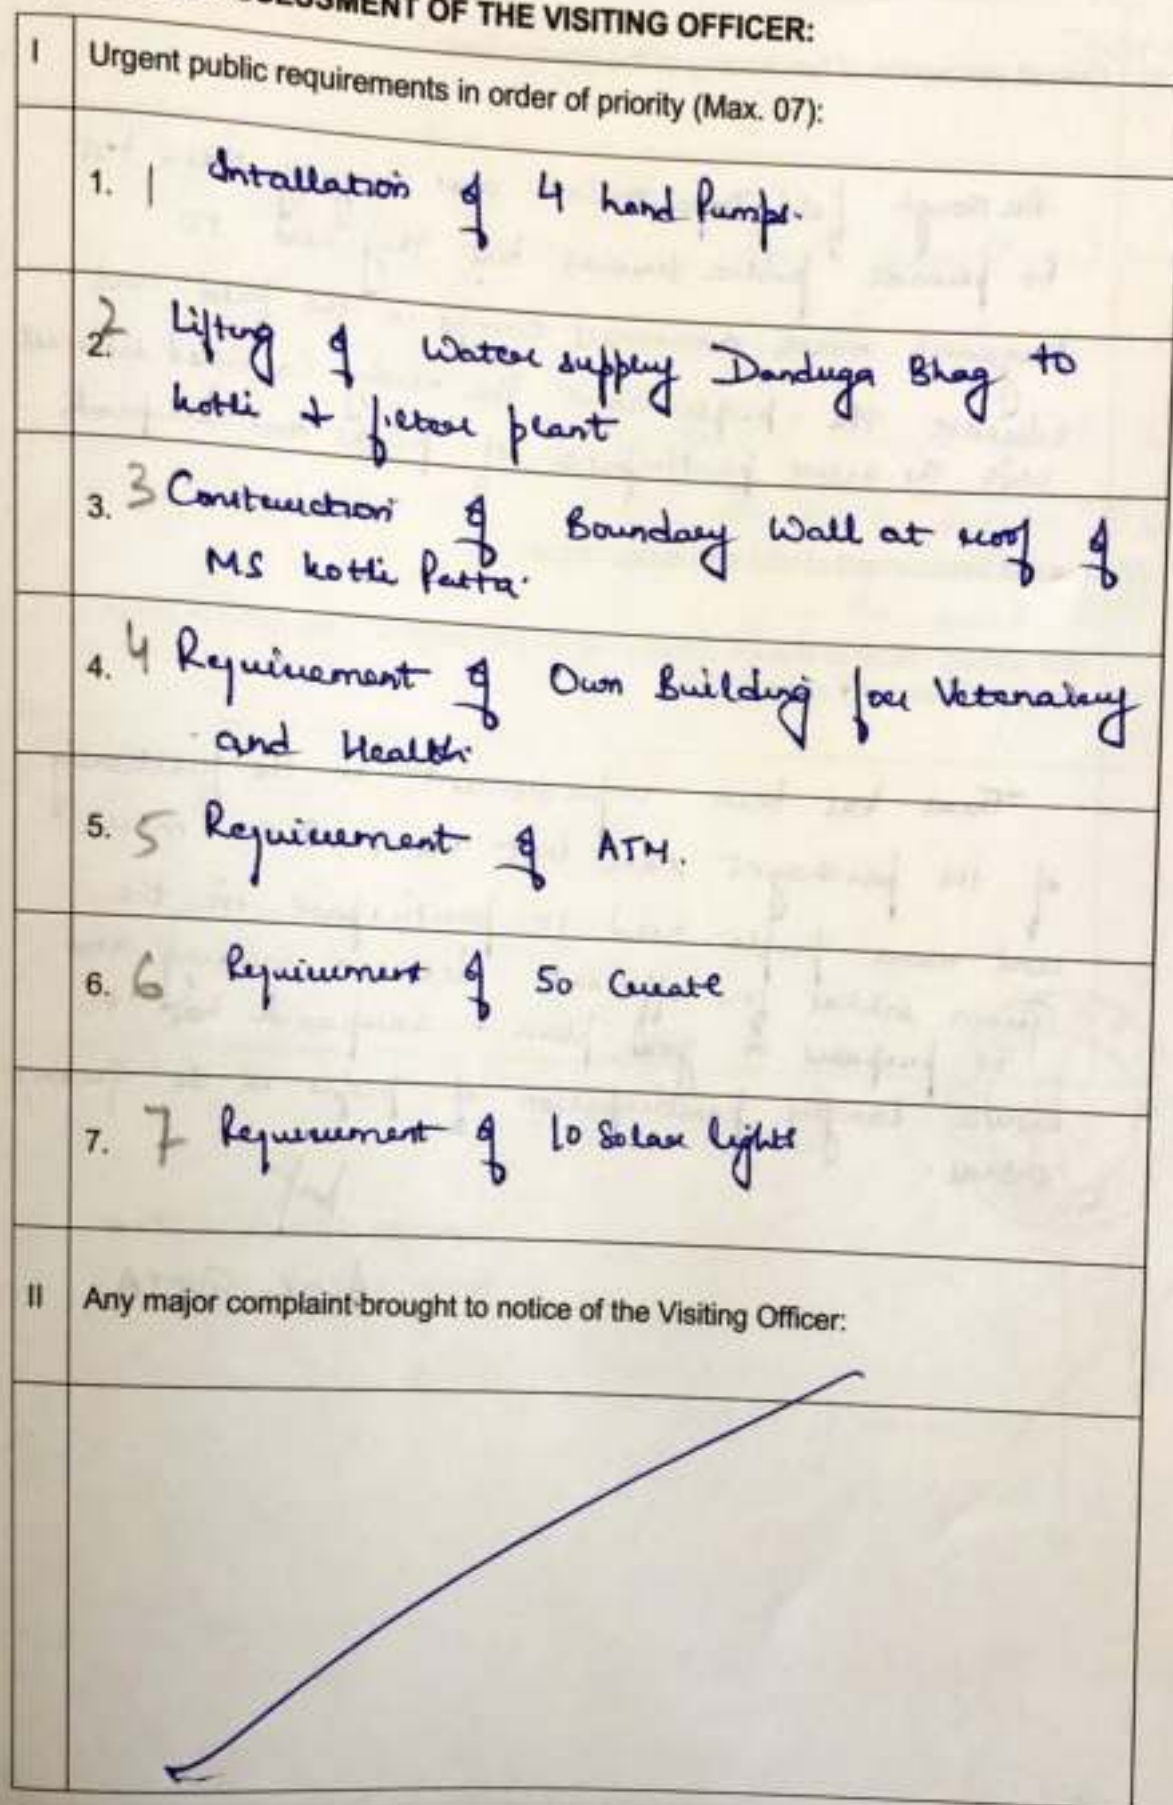 ASSESSMENT OF THE VISITING OFFICER:
I Urgent public requirements in order of priority (Max. 07):
1. 1 Intallation of 4 hand Pumps.
2. 2 Lifting of Water supply Danduga Bhag to
kotli + filter plant
3. 3 Construction of Boundary Wall at roof of
MS kotli Patta.
4. 4 Requirement of Own Building for Vetenairy
and Health.
5. 5 Requirement of ATM.
6. 6 Requirement of 50
7. 7 Requirement of 10 Solar lights
II Any major complaint brought to notice of the Visiting Officer: